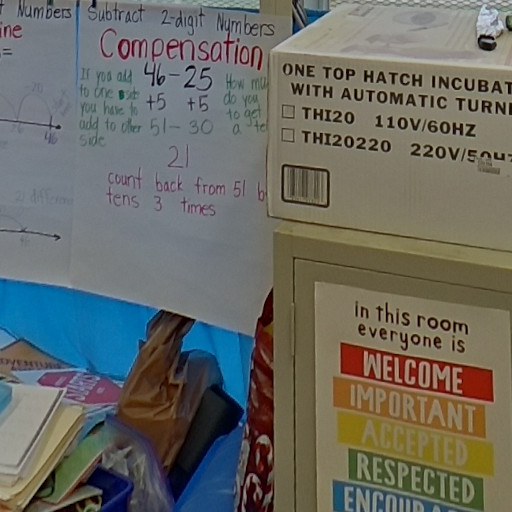 Numbers
ine
Subtract 2-digit Numbers
Compensation
If you add
to one side
you have to
add to other
side
46-25
+5 +5
51-30
21
How mu
do you
to get
a te
count back from 51 b
tens 3 times
46
ONE TOP HATCH INCUBAT
WITH AUTOMATIC TURN
THI20 110V/60HZ
THI20220 220V/50HZ
in this room
everyone is
WELCOME
IMPORTANT
ACCEPTED
RESPECTED
ENCOURAG